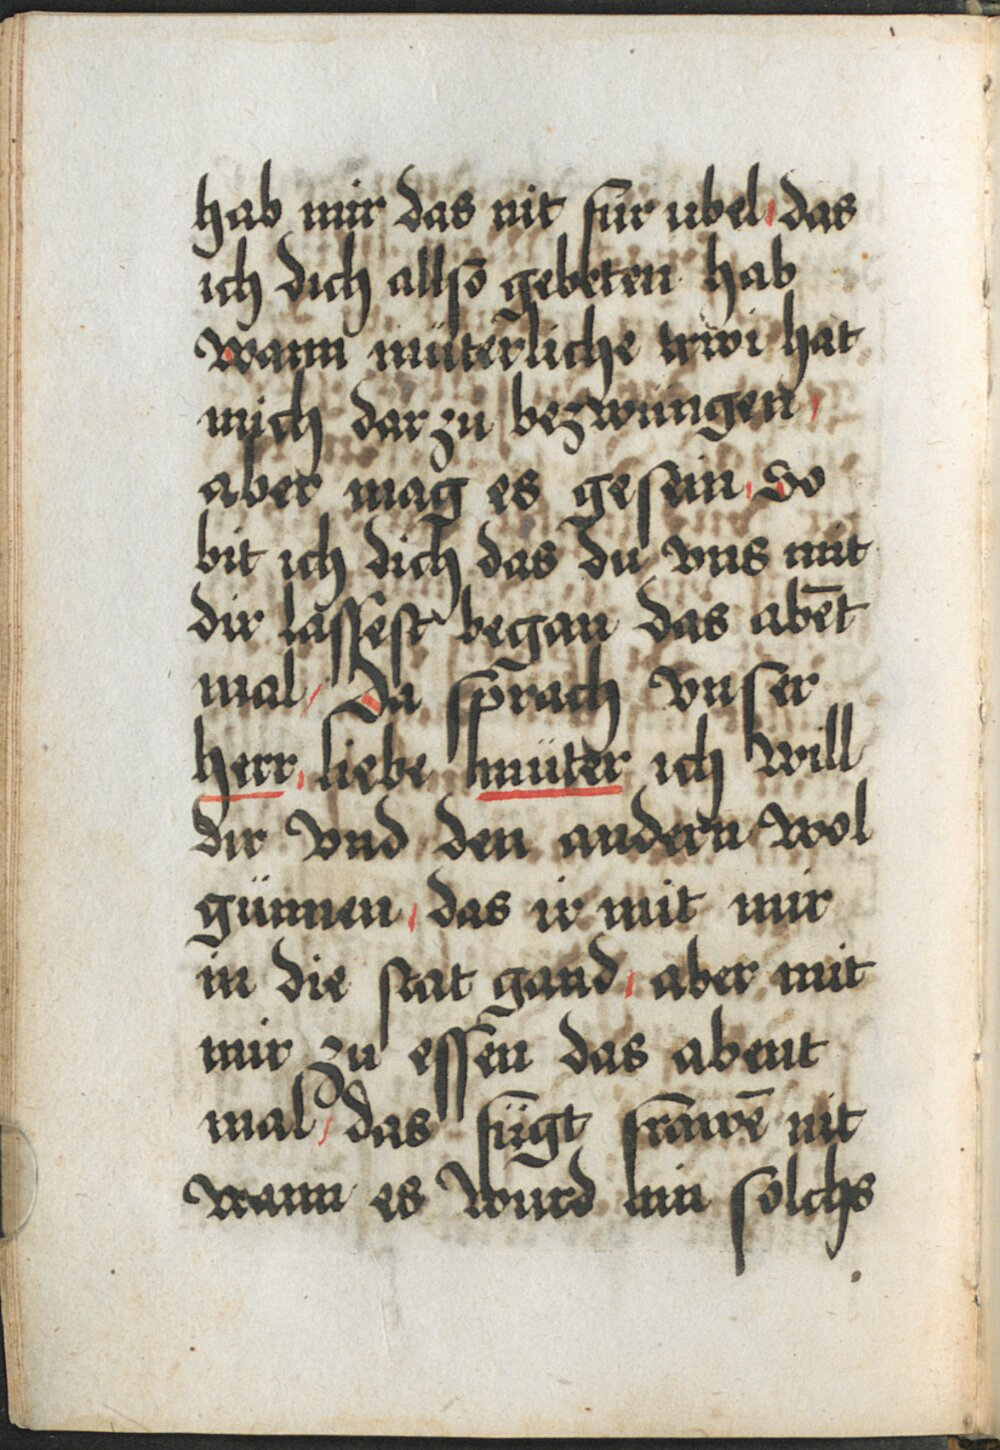 hab mir das nit für ubel / das
ich dich allso gebeten hab
wann müterliche trwi hat
mich dar zu bezwungen /
aber mag es gesein / So
bit ich dich das du vns mit
dir lassest began das abēt
mal / Da sprach vnser
herr / liebe müter ich will
dir vnd den andern wol
günnen / das ir mit mir
in die stat gand / aber mit
mir zu essen das abent
mal / das fügt frāwē nit
wann es wurd ain solchs